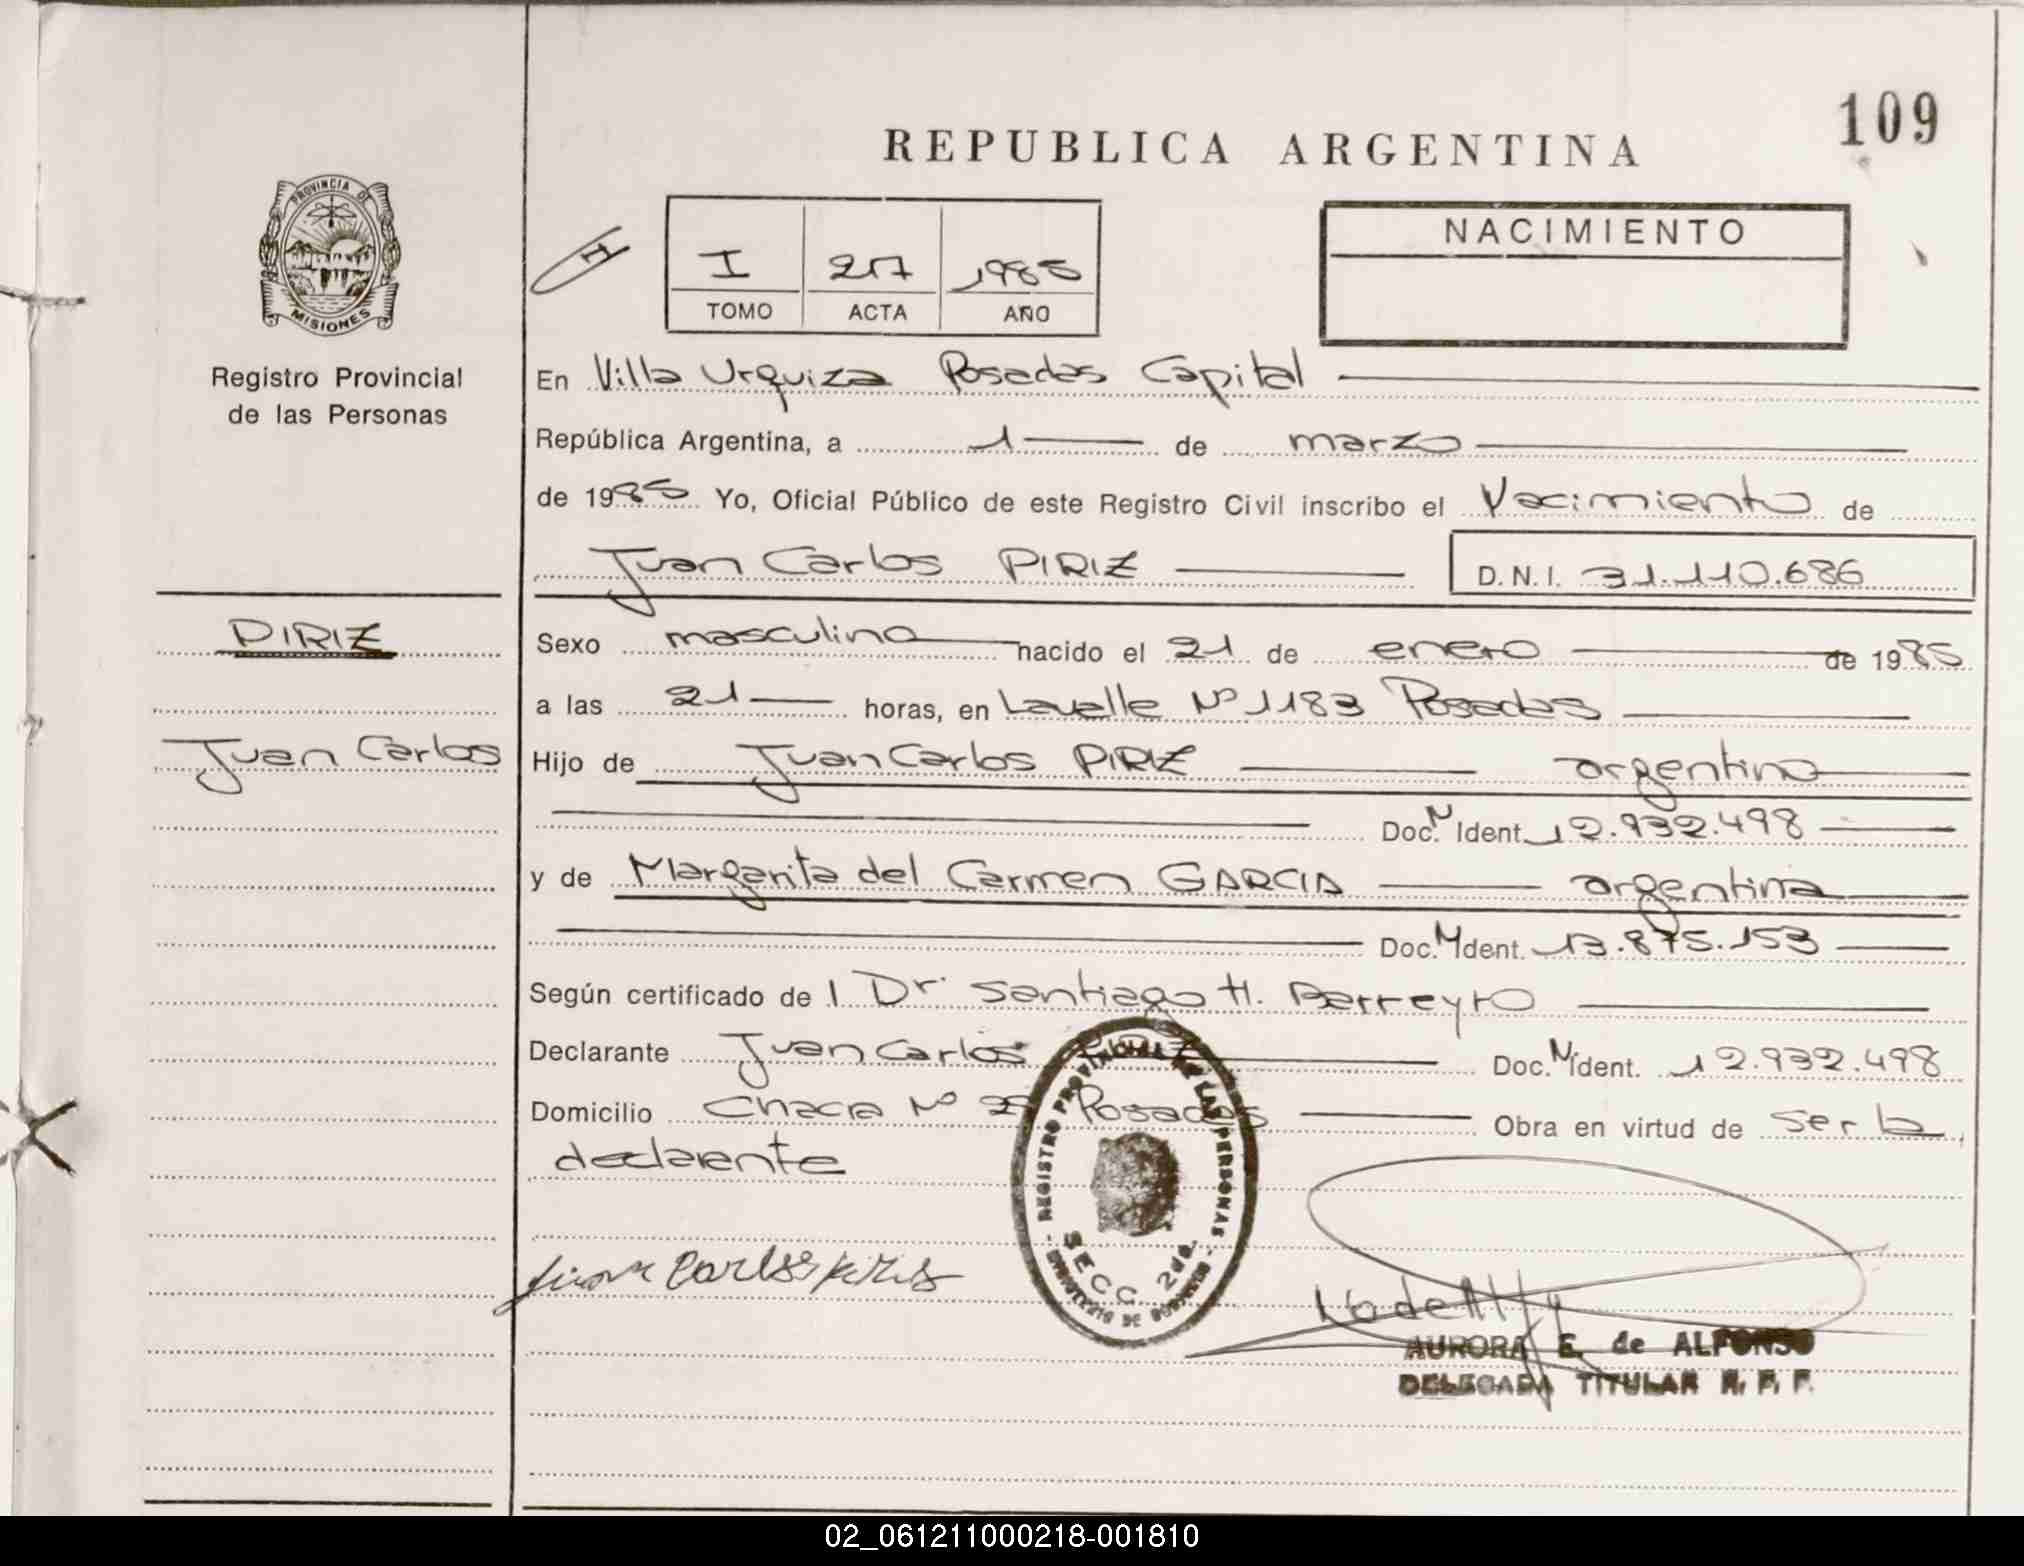 109
REPUBLICA ARGENTINA
PROVINCIA DE
MISIONES
Registro Provincial
de las Personas
NACIMIENTO
I 217 1985
TOMO ACTA AÑO
En Villa Urquiza Posadas Capital
República Argentina, a 1 de marzo
de 1985 Yo, Oficial Público de este Registro Civil inscribo el Nacimiento de
Juan Carlos PIRIZ D.N.I. 31.110.686
PIRIZ
Juan Carlos
Sexo masculino nacido el 21 de enero de 1985
a las 21 horas, en Lavalle Nº 1183 Posadas
Hijo de Juan Carlos PIRIZ argentino
Doc. N Ident. 12.932.498
y de Margarita del Carmen GARCIA argentina
Doc. N Ident. 13.875.153
Según certificado de l Dr. Santiago H. Barreyro
Declarante Juan Carlos Doc. N Ident. 12.932.498
Domicilio Chacra Nº Posadas Obra en virtud de ser la
declarente
REGISTRO PROVINCIAL DE LAS PERSONAS
SECC 2da.
MINISTERIO DE GOBIERNO
Juan Carlos Piris
AURORA E. de ALFONSO
DELEGADA TITULAR R. P. P.
02_061211000218-001810